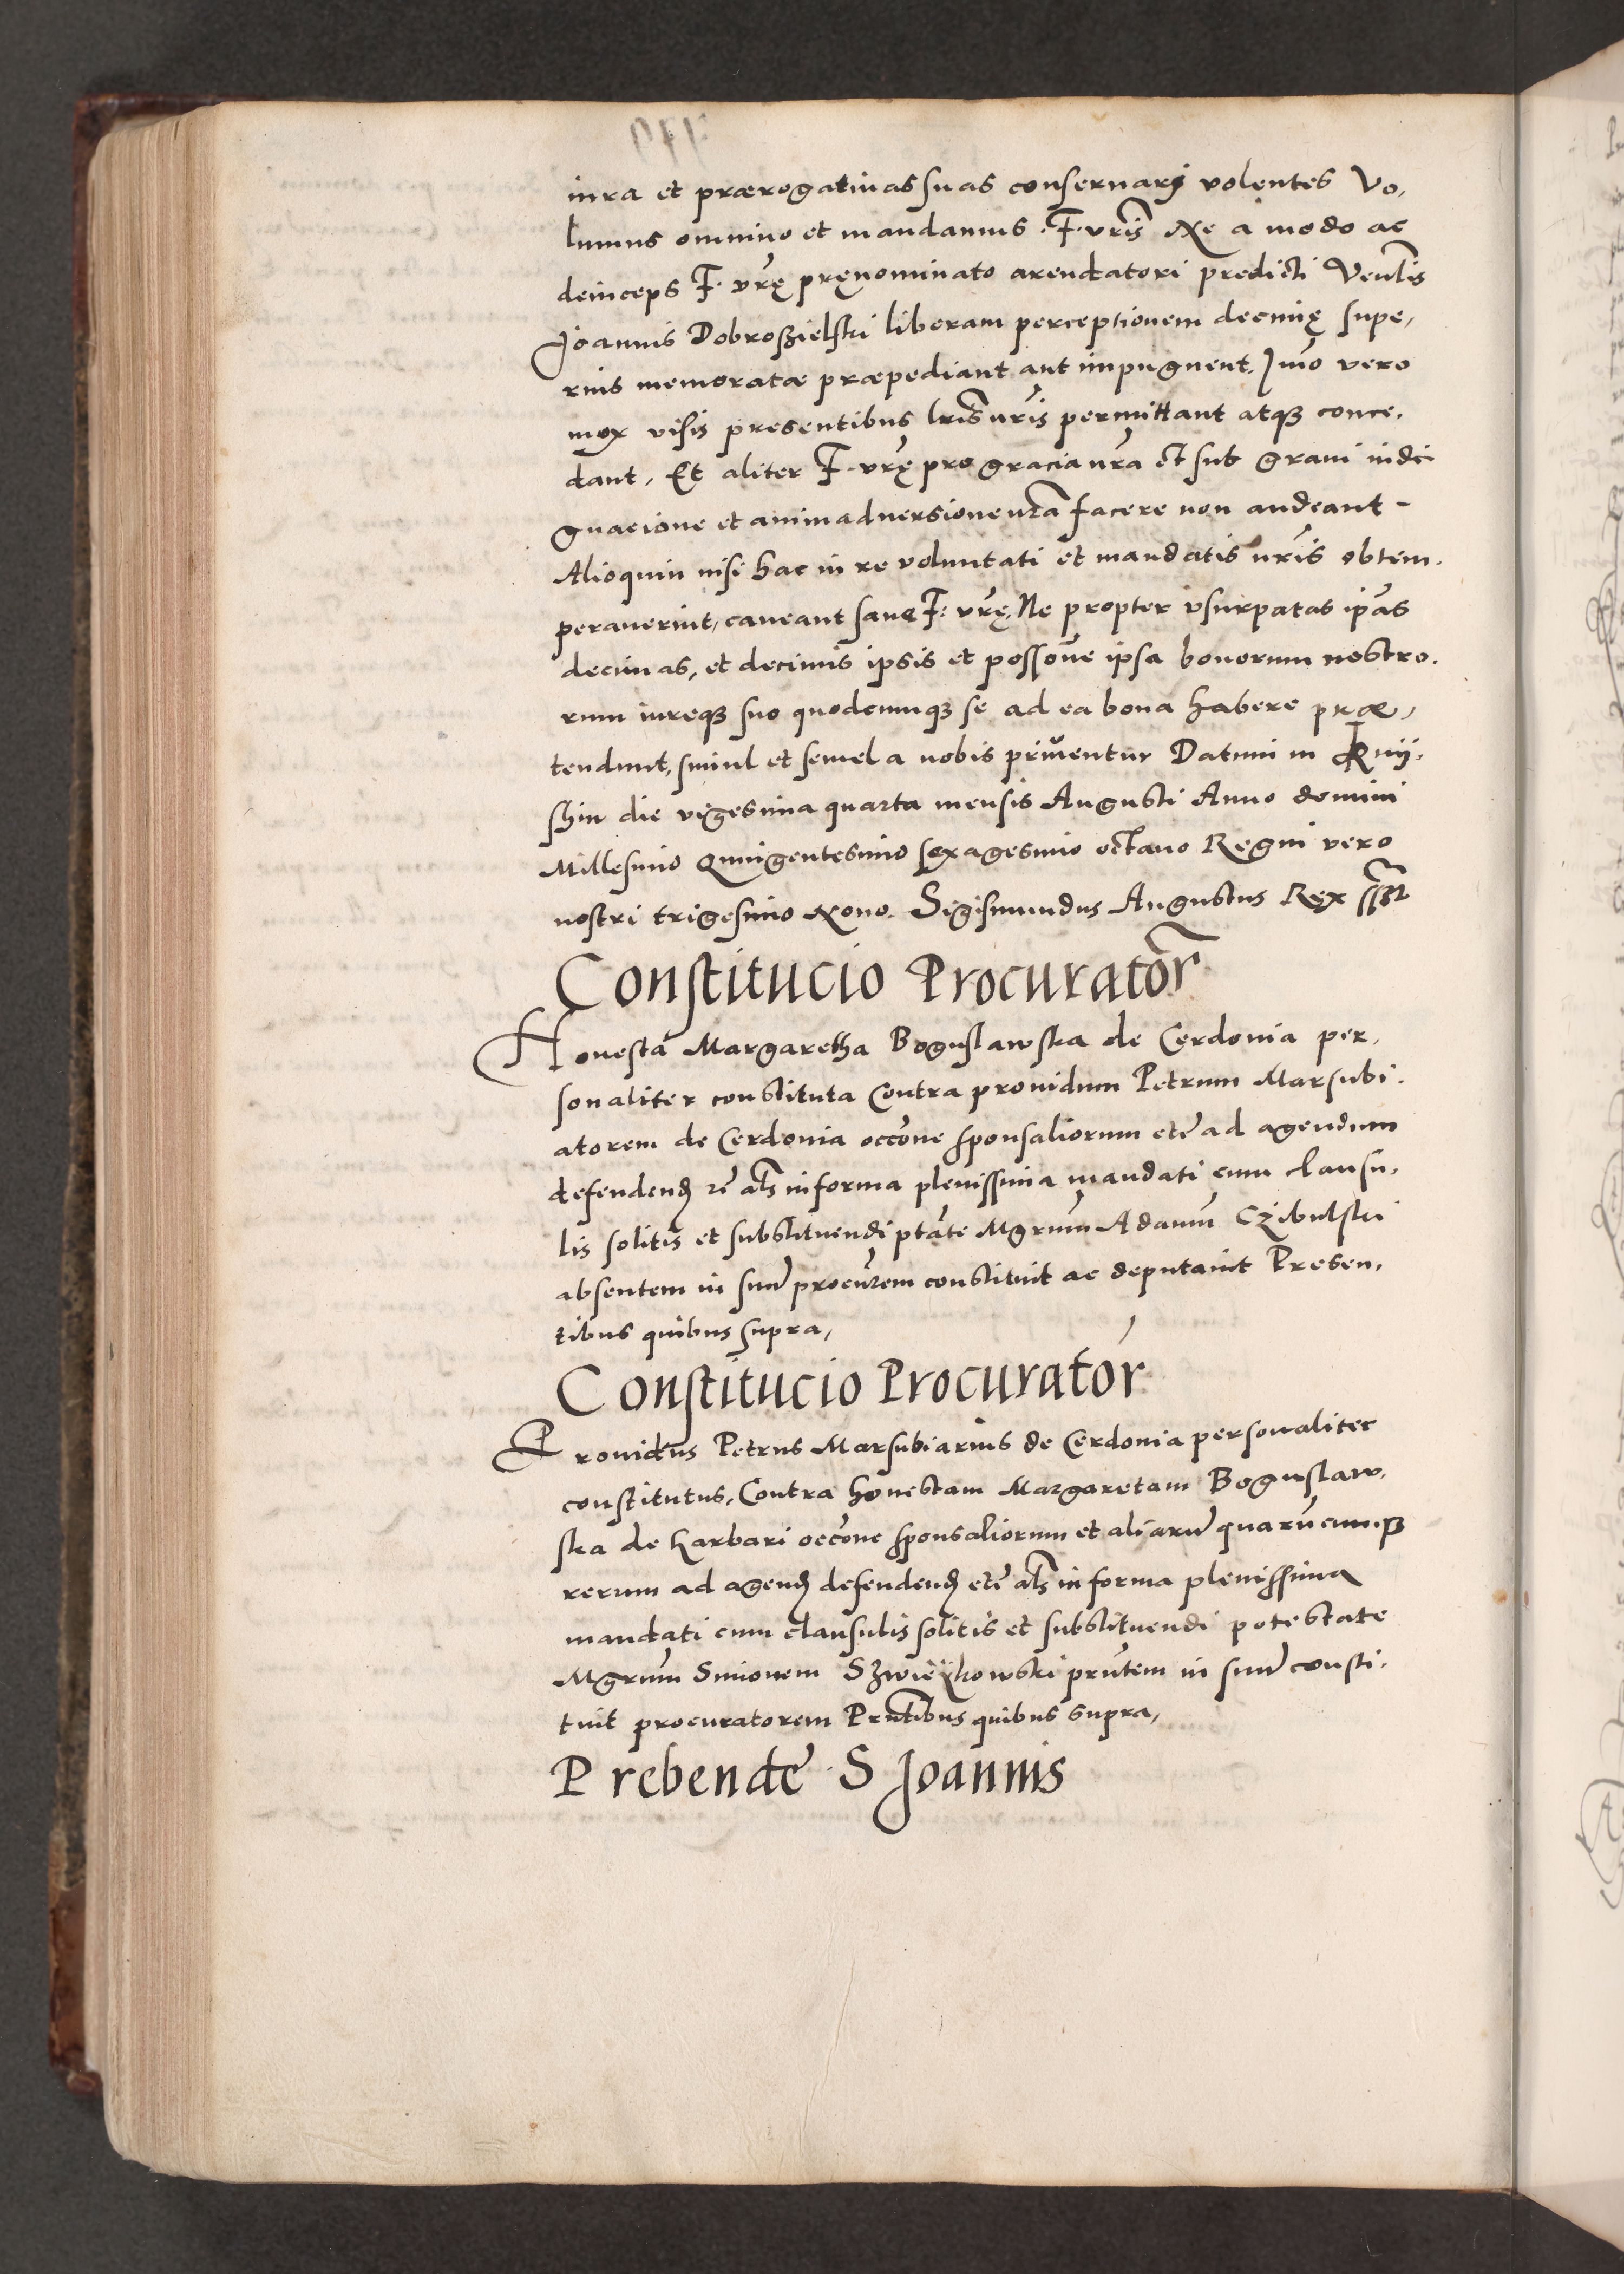 iura et prærogatiuas suas conseruarj volentes Vo,
lumus omnino et mandamus .F. vr̃is Ne a modo ac
deinceps F. vr̃ę pręnominato arendatori predicti Venłis
Joannis Dobroszielski liberam perceptionem decimę supe,
rius memoratæ præpediant aut impugnent. Jmõ vero
mox visis presentibus lr̃is nr̃is permittant atqꝫ conce.
dant, Et aliter F. vr̃ę pro gracia nr̃a et sub graui indi
gnacione et animaduersione nr̃a facere non audeant -
Alioquin nisi hac in re voluntati et mandatis nr̃is obtem.
perauerint, caueant sane F: vr̃ę, Ne propter vsurpatas ip̃as
decimas, et decimis ipsis et posso͠ne ipsa bonorum nostro.
rum iureqꝫ suo quodcumqꝫ se ad ea bona habere præ,
tendunt, simul et semel a nobis priventur Datum in Knij.
shin die vigesima quarta mensis Augusti Anno domini
Millesimo Quingentesimo sexagesimo octauo Regni vero
nostri trigesimo Nono. Sigismundus Augustus Rex sst
Constitucio Procurator̃
Honesta Margaretha Boguslawska de Cerdonia per,
sonaliter constituta Contra prouidum Petrum Marsubi.
atorem de Cerdonia occõne sponsaliorum etc̃ ad agendum
defendenđ rẽ als̃ in forma plenissima mandati cum clausu,
lis solitis et substituendi ptãte Mgrum̃ Adamũ Czibulski
absentem in suũ procur̃em constituit ac deputauit Presen,
tibus quibus supra,
Constitucio Procurator
Prouidus Petrus Marsubiarius de Cerdonia personaliter
constitutus, Contra honestam Margaretam Boguslaw,
ska de harbari occõne sponsaliorum et aliarũ quarũcumqꝫ
rerum ad agenđ defendenđ etc̃ als̃ in forma plenissima
mandati cum clausulis solitis et substituendi potestate
Mgrum̃ Simonem prñtem in suũ consti.
tuit procuratorem Prñtibus quibus supra,
Prebende S Joannis